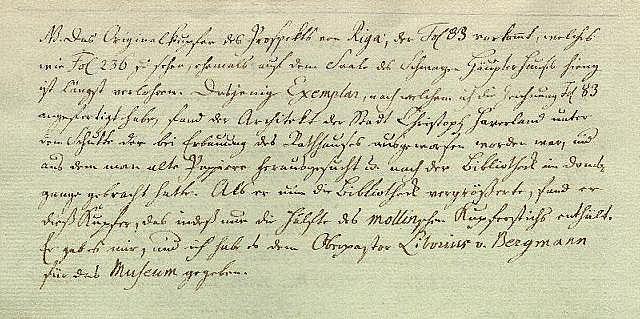 NB. Das Originalkupfer des Prospekts von Riga, der Fol 83 vorkommt, welches
wie Fol 236 zu sehen, ehemals auf dem Saale des Schwarzen Häupterhauses hieng
ist längst verlohren. Dasjenige Exemplar, nach welchem ich die Zeichnung Fol 83
angefertigt habe, fand der Architekt der Stadt Christoph Haberland unter
dem Schutte der bei Erbauung des Rathhauses ausgeworfen worden war, und
aus dem man alte Papiere herausgesucht u. nach der Bibliothek im Doms-
gange gebracht hatte. Als er nun die Bibliothek vergrößerte, fand er
dieß Kupfer, das indeß nur die Hälfte des mollerschen Kupferstichs enthält.
Er gab es mir, und ich hab es dem Oberpastor Liborius v. Bergmann
für das Museum gegeben.